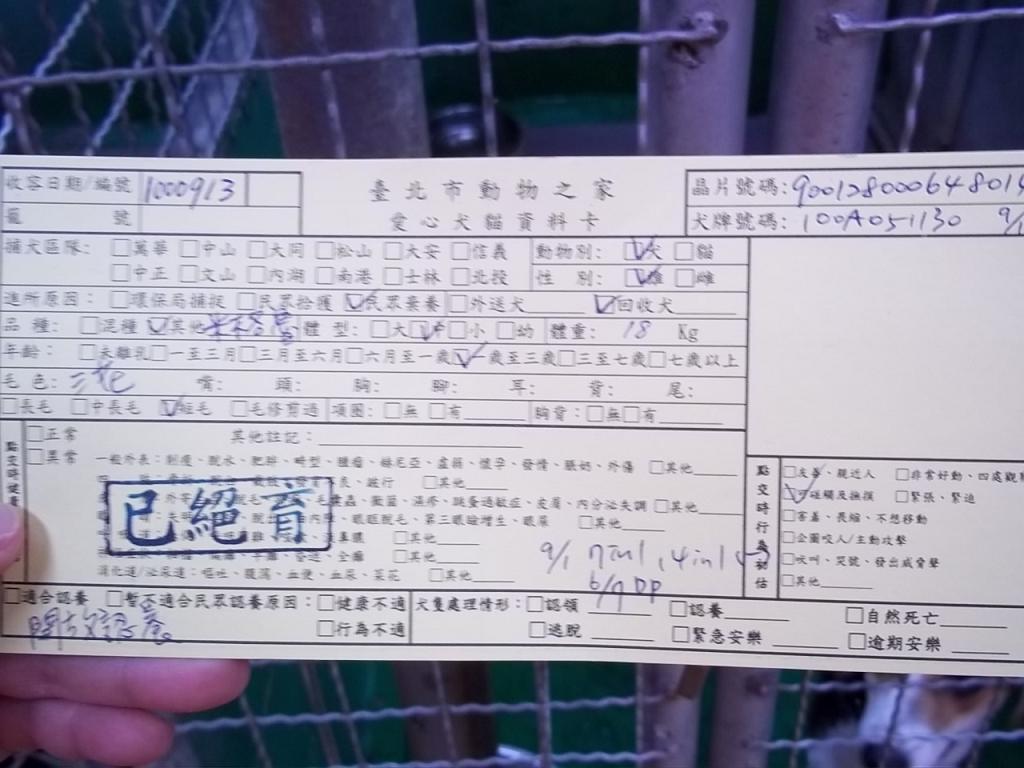 收容日期/編號 1000913
籠 號
臺北市動物之家
愛心犬貓資料卡
晶片號碼:900128000648014
犬牌號碼:100A051130 9/1
捕犬區隊: □萬華 □中山 □大同 □松山 □大安 □信義
□中正 □文山 □內湖 □南港 □士林 □北投
動物別: ☑犬 □貓
性 別: ☑雄 □雌
進所原因: □環保局捕捉 □民眾拾獲 ☑民眾棄養 □外送犬 ☑回收犬
品 種: □混種 ☑其他 米格魯 體 型: □大 ☑中 □小 □幼 體重: 18 Kg
年齡: □未離乳 □一至三月 □三月至六月 □六月至一歲 ☑一歲至三歲 □三至七歲 □七歲以上
毛 色: 三花 嘴: 頭: 胸: 腳: 耳: 背: 尾:
□長毛 □中長毛 ☑短毛 □毛修剪過 項圈: □無 □有 胸背: □無 □有
□正常 其他註記:
□異常 一般外表: 削瘦、脫水、肥胖、畸型、腫瘤、赫尼亞、虛弱、懷孕、發情、脹奶、外傷 □其他
跛行 □其他
黴菌、濕疹、跳蚤過敏症、皮屑、內分泌失調 □其他
眼眶脫毛、第三眼瞼增生、眼屎 □其他
□其他
□其他
消化道/泌尿道: 嘔吐、腹瀉、血便、血尿 □其他
已絕育
9/1 7in1, 4in1
6/7 DP
點交時行為初估
□友善、親近人 □非常好動、四處觀
☑碰觸及撫摸 □緊張、緊迫
□害羞、畏縮、不想移動
□企圖咬人/主動攻擊
□吠叫、哭號、發出威脅聲
□其他
□適合認養 □暫不適合民眾認養原因: □健康不適 犬隻處理情形: □認領 □認養 □自然死亡
開放認養 □行為不適 □逃脫 □緊急安樂 □逾期安樂